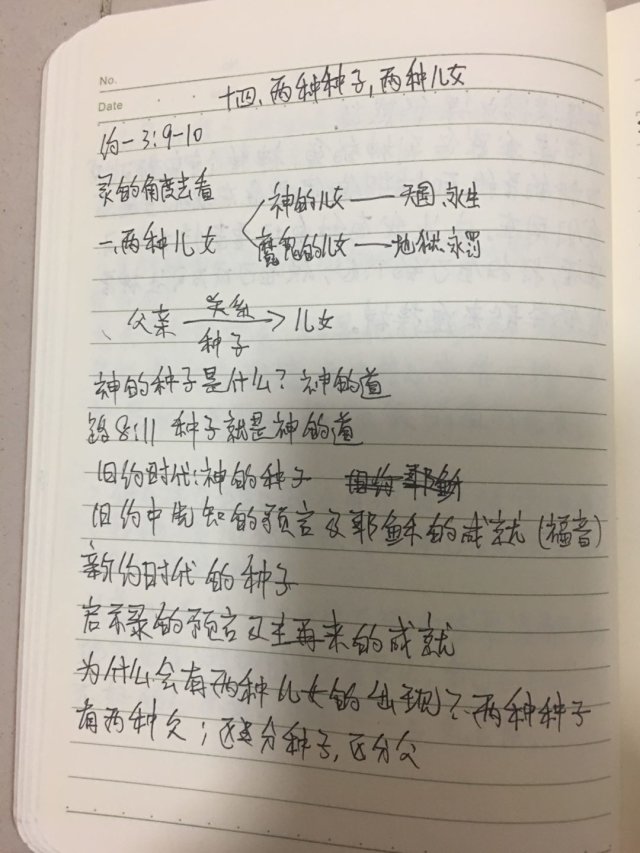 No.
Date
十四、两种种子,两种儿女
约一3:9-10
灵的角度去看
神的儿女——天国、永生
一、两种儿女
魔鬼的儿女——地狱、永罚
关系
、父亲 → 儿女
种子
神的种子是什么?神的道
路8:11 种子就是神的道
旧约时代:神的种子 旧约 耶稣
旧约中先知的预言及耶稣的成就(福音)
新约时代的种子
启示录的预言及主再来的成就
为什么会有两种儿女的出现?两种种子
有两种父;区分种子,区分父